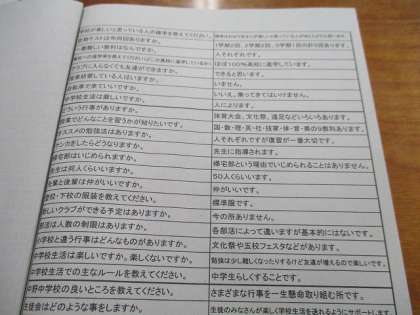 1学期2回、2学期2回、3学期1回の計5回あります。
人それぞれです。
ほぼ100%高校に進学しています。
できると思います。
いません。
いいえ、乗ってきてはいけません。
中学校生活は厳しいですか。 人によります。
体育大会、文化祭、遠足などいろいろあります。
授業でどんなことを習うかが知りたいです。 国・数・理・英・社・技家・体・音・美の9教科あります。
オススメの勉強法はありますか。 人それぞれですが復習が一番大切です。
ケンカをしたらどうなりますか。 先生に指導されます。
帰宅部はいじめられますか。 帰宅部という理由でいじめられることはありません。
先生は何人くらいいますか。 50人くらいいます。
先輩と後輩は仲がいいですか。 仲がいいです。
登校・下校の服装を教えてください。 標準服です。
新しいクラブができる予定はありますか。 今の所ありません。
部活は人数の制限はありますか。 各部活によって違いますが基本的にはないです。
小学校と違う行事はどんなものがありますか。 文化祭や五校フェスタなどがあります。
中学校生活は楽しいですか。楽しくないですか。 勉強は少し難しくなったりするけど友達が増えるので楽しいです。
中学校生活での主なルールを教えてください。 中学生らしくすることです。
中野中学校の良いところを教えてください。 さまざまな行事を一生懸命取り組む所です。
生徒会はどのような事をしますか。 生徒のみなさんが楽しく学校生活を送れるようにサポートします